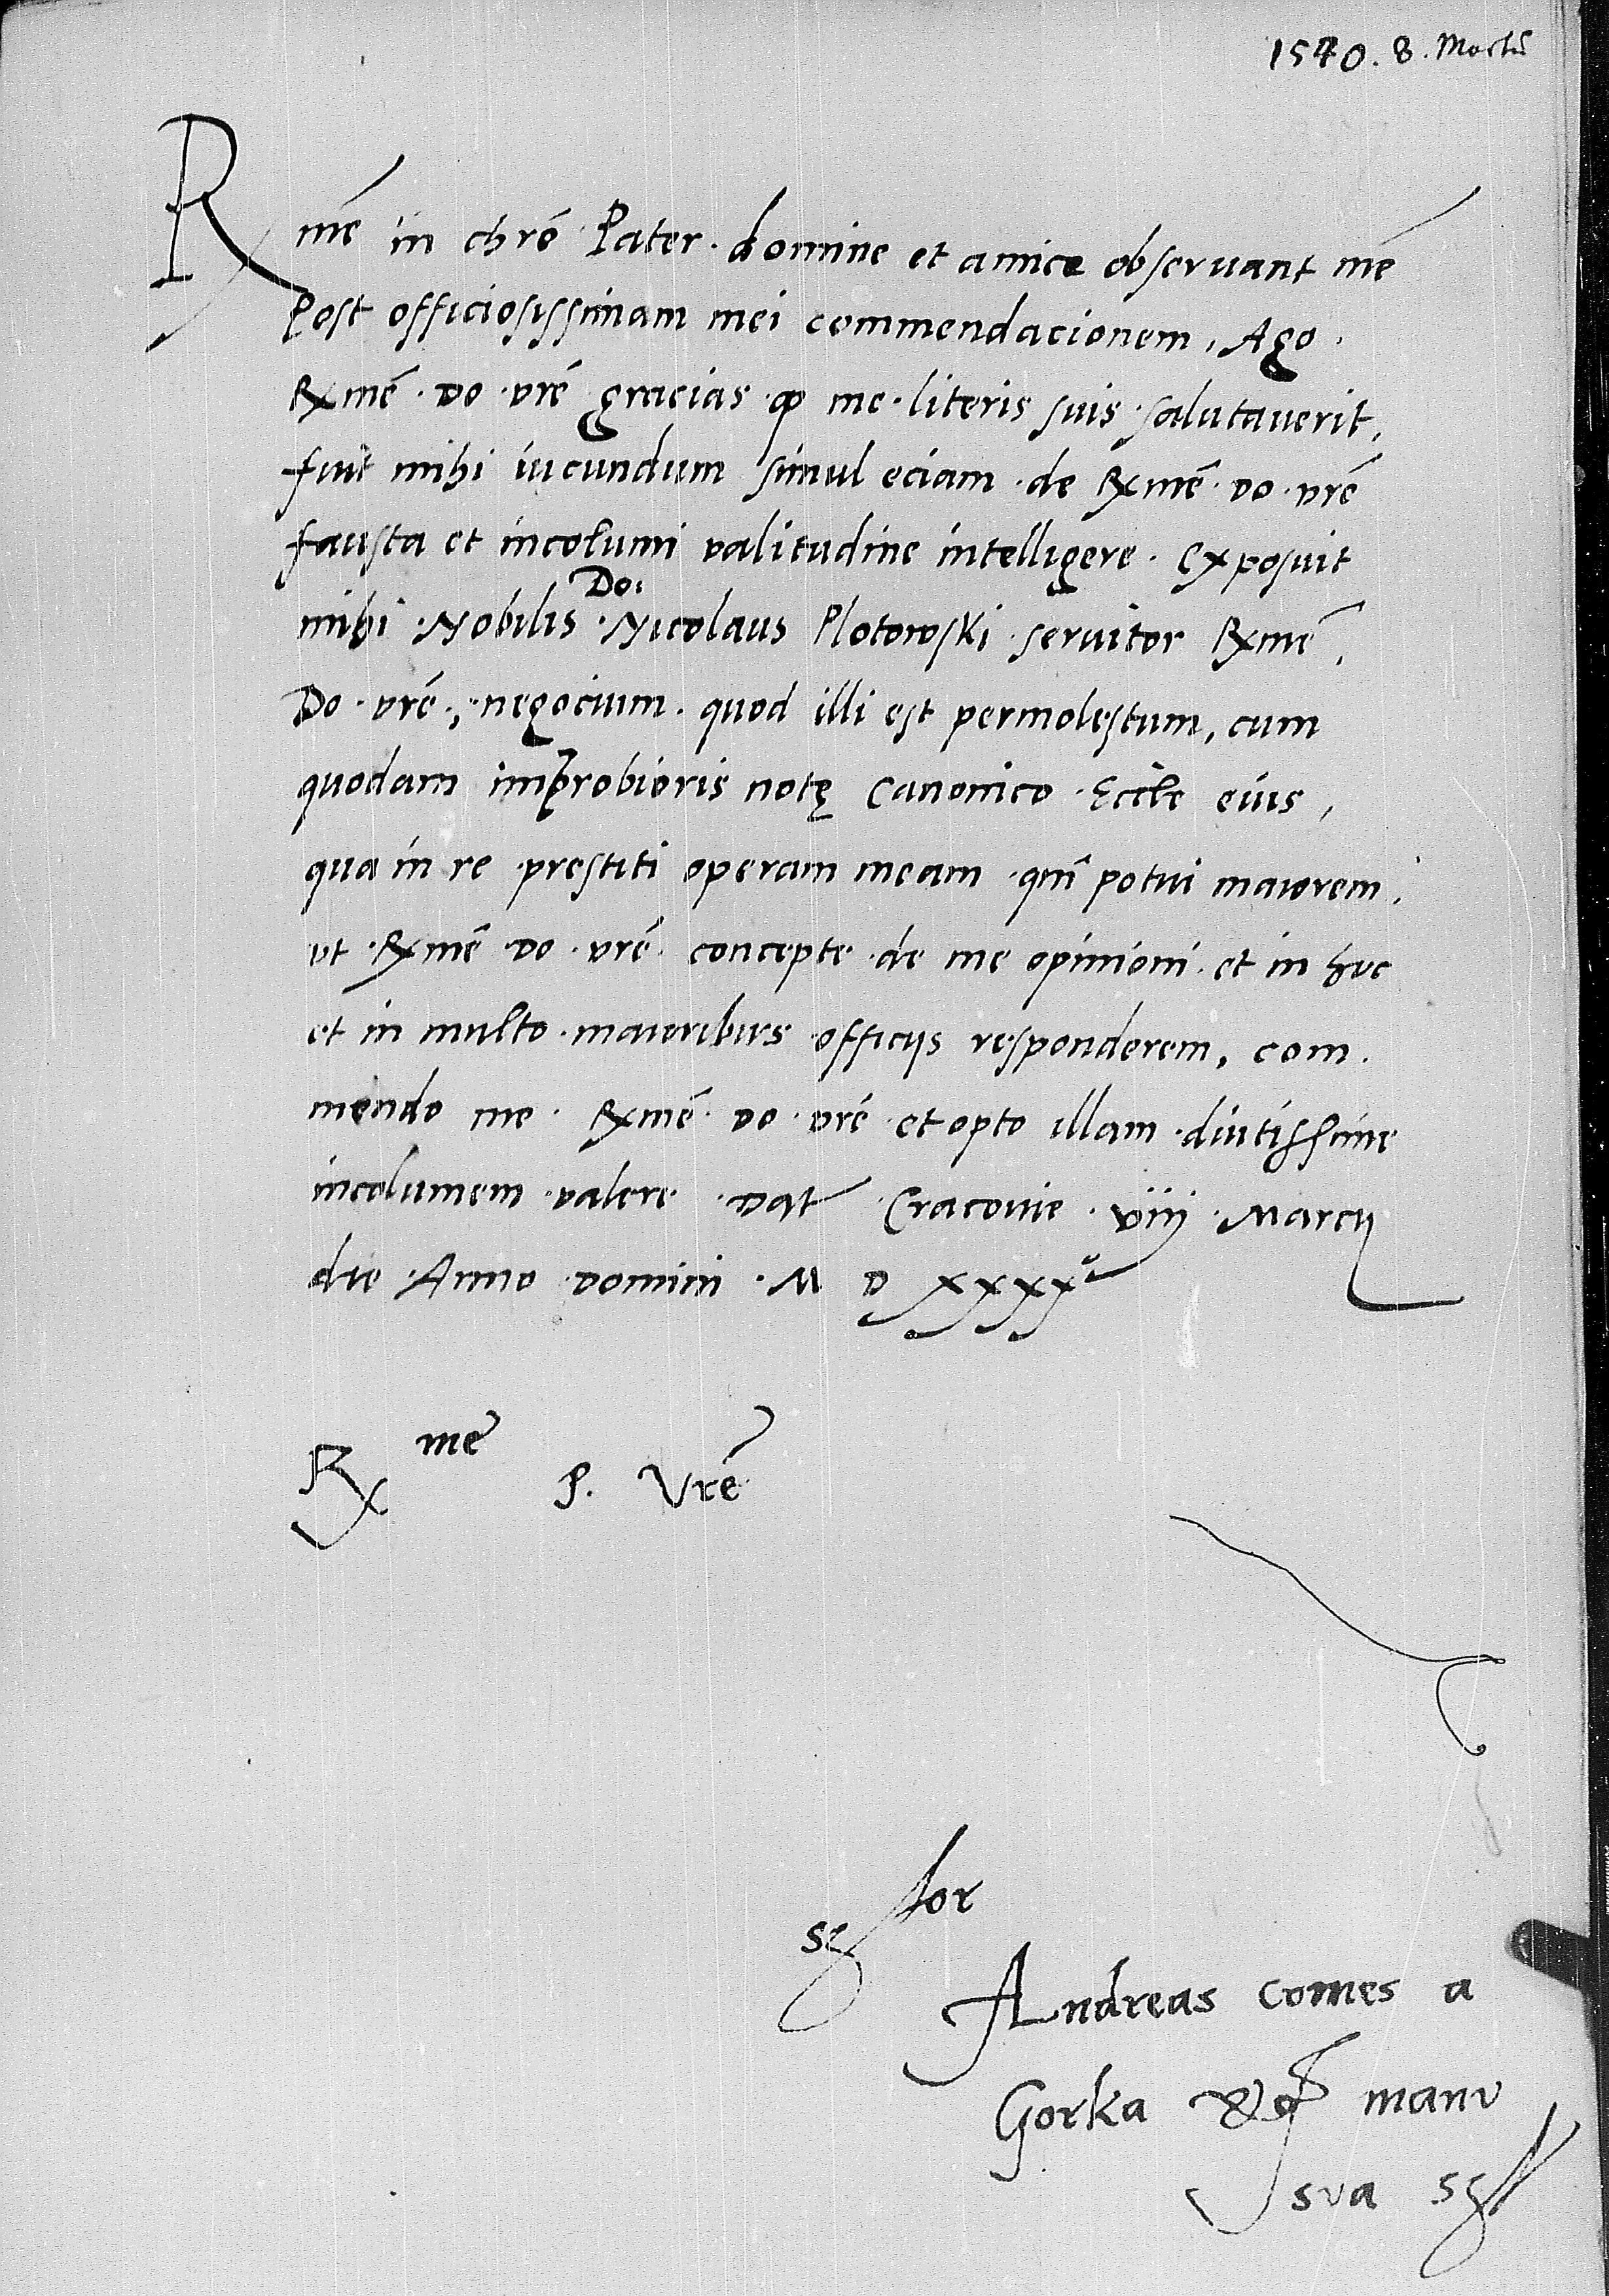 1540. 8. Martii
Rme in chro Pater. domine et amice observant me
Post officiosissimam mei commendacionem, Ago.
Rxme. Do. vre gracias. q me. literis suis. salutaverit,
fuit mihi iucundum simul eciam. de Rxme. Do. vre
fausta et incolumi valitudine intelligere. Exposuit
Do:
mihi. Nobilis. Nicolaus Plotowski. servitor Rxme,
Do. vre., negocium. quod illi est permolestum, cum
quodam improbioris notę Canonico. Eccle eius,
qua in re. prestiti operam meam. qm potui maiorem.
vt. Rxme Do. vre. concepte. de me opinioni. et in hoc
et in multo. maioribus officijs responderem, com.
mendo me. Rxme. Do. vre. et opto illam. diutissime
incolumem. valere. Dat. Cracovie. viij. Marcij
die. Anno Domini. M D xxxx
Rx me P. Vre
se tor
Andreas comes a
Gorka manu
sua